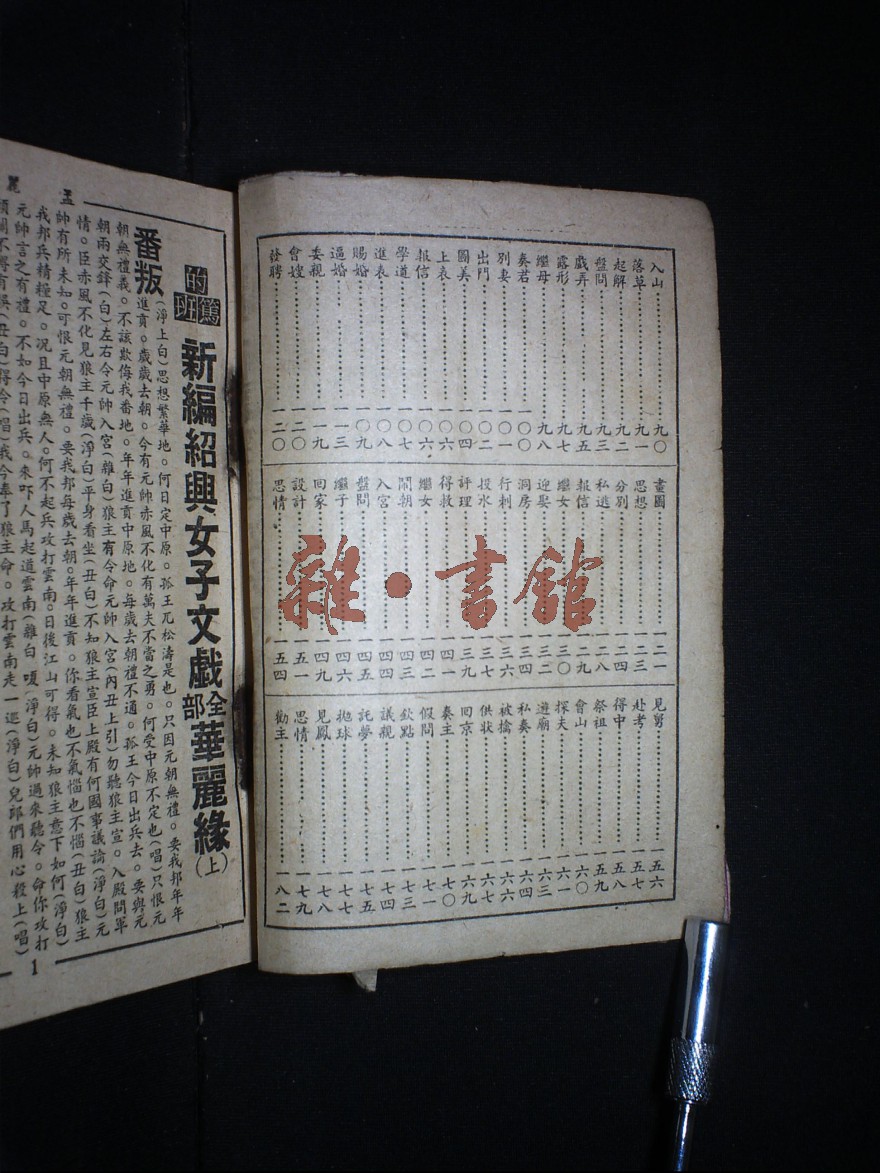 入山……九〇
落草……九一
起解……九二
盤問……九三
戲弄……九五
露形……九七
繼母……九八
奏君……一〇〇
別妻……一〇一
出門……一〇二
圖美……一〇四
上表……一〇六
報信……一〇六
學道……一〇七
進表……一〇八
賜婚……一〇九
逼婚……一一三
委親……一一九
會嫂……一二〇
發聘……一二〇
畫圖……一二一
思想……一二三
分別……一二四
私逃……一二八
報信……一二九
繼女……一三〇
迎娶……一三二
洞房……一三四
行刺……一三六
投水……一三七
評理……一三九
得救……一四一
繼女……一四二
鬧朝……一四三
入宮……一四四
盤問……一四五
繼子……一四六
回家……一四九
設計……一五一
思情……一五四
見舅……一五六
赴考……一五七
得中……一五八
祭祖……一五九
會山……一六〇
探夫……一六一
遊廟……一六三
私奏……一六四
被擒……一六六
供狀……一六七
回京……一六九
奏主……一七〇
假問……一七一
欽點……一七三
議親……一七四
託夢……一七五
拋球……一七七
見鳳……一七八
思情……一七九
勸主……一八二
雜·書館
的篤班 新編紹興女子文戲全部華麗緣(上)
番叛
(淨上白)思想繁華地。何日定中原。孤王兀松濤是也。只因元朝無禮。要我邦年年
進貢。歲歲去朝。今有元帥赤風不化有萬夫不當之勇。何受中原不定也(唱)只恨元
朝無禮義。不該欺侮我番地。年年進貢中原地。每歲去朝禮不通。孤王今日出兵去。要與元
朝兩交鋒(白)左右令元帥入宮(雜白)狼主有令命元帥入宮(內丑上引)勿聽狼主宣。入殿問軍
情。臣赤風不化見狼主千歲(淨白)平身看坐(丑白)不知狼主宣臣上殿有何國事議論(淨白)元
帥有所未知。可恨元朝無禮。要我邦每歲去朝。年年進貢。你看氣也不氣惱也不惱(丑白)狼主
我邦兵精糧足。況且中原無人。何不起兵攻打雲南。日後江山可得。未知狼主意下如何(淨白)
元帥言之有禮。不如今日出兵。來吓人馬起道雲南(雜白 嗄 淨白)元帥過來聽令。命你攻打
得令(唱)我今奉了狼主命。攻打雲南走一遭(淨白)兒郎們用心殺上(唱)
孟
麗
1